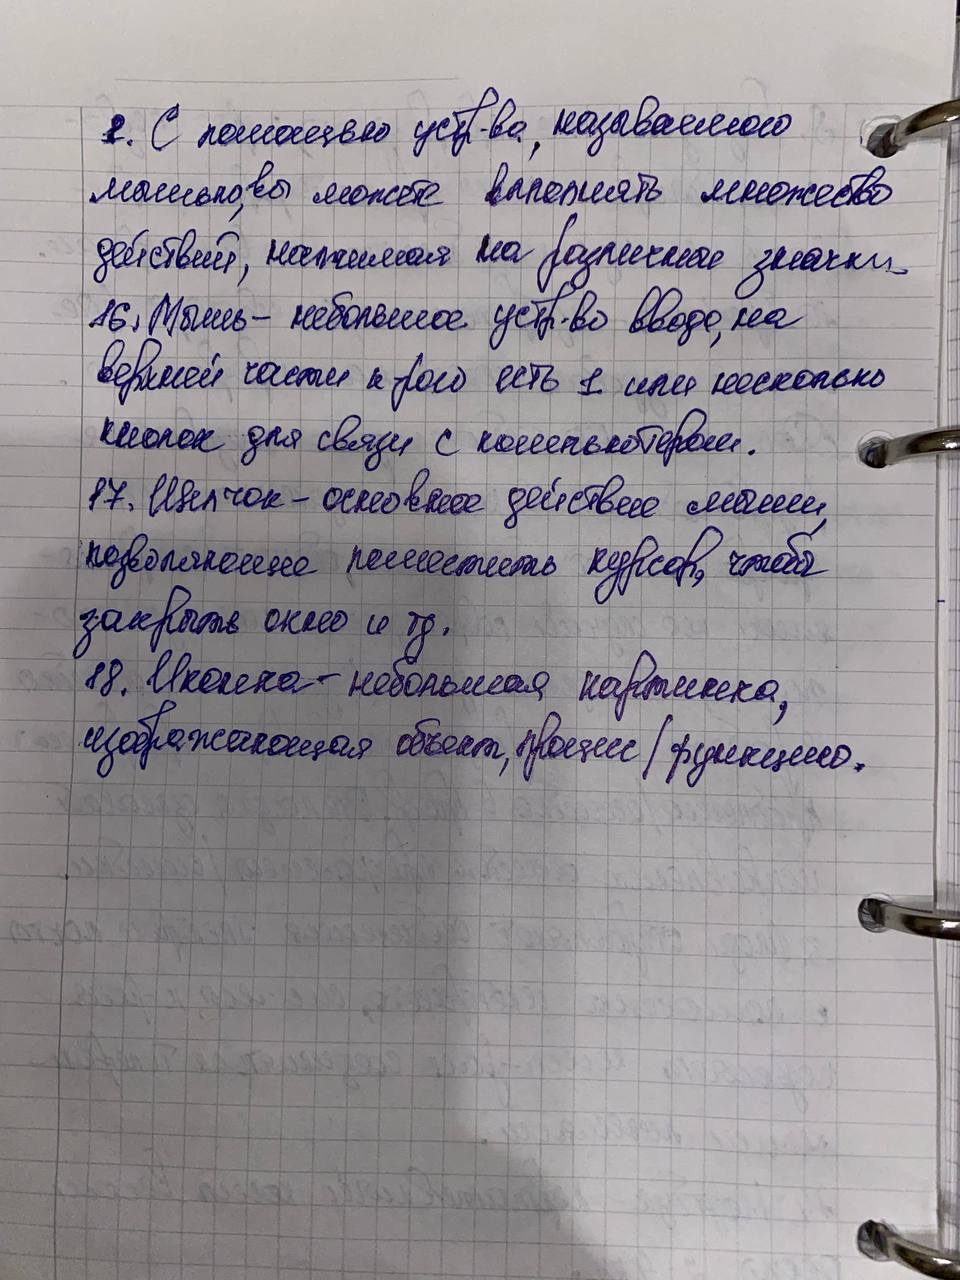 1. С помощью устр-ва, называемого
мышью, вы можете выполнять множество
действий, нажимая на различные значки.
16. Мышь - небольшое устр-во ввода, на
верхней части к-рого есть 1 или несколько
кнопок для связи с компьютером.
17. Щелчок - основное действие мыши,
позволяющее поместить курсор, чтобы
закрыть окно и тд.
18. Иконка - небольшая картинка,
изображающая объект, процесс / функцию.